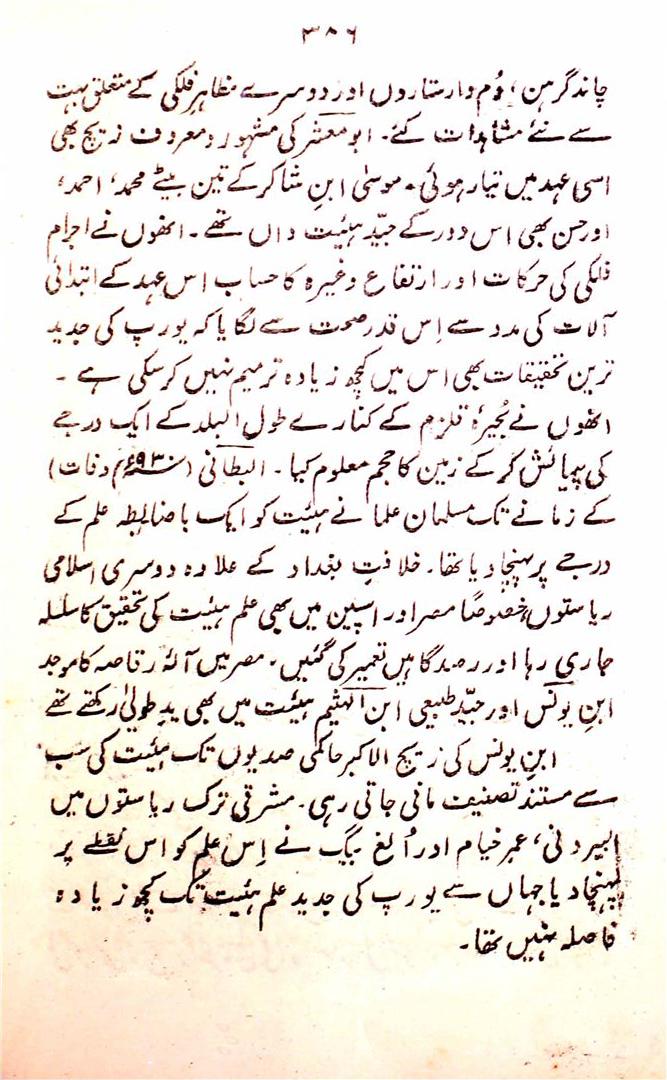 ۳۸۶
چاند گرہن، دُم دار ستاروں اور دوسرے مظاہر فلکی کے متعلق بہت
سے نئے مشاہدات کئے۔ ابو معشر کی مشہور و معروف زیچ بھی
اسی عہد میں تیار ہوئی۔ موسیٰ ابنِ شاکر کے تین بیٹے محمد، احمد،
اور حسن بھی اس دور کے جیّد ہئیت داں تھے۔ انھوں نے اجرام
فلکی کی حرکات اور ارتفاع وغیرہ کا حساب اِس عہد کے ابتدائی
آلات کی مدد سے اِس قدر صحت سے لگایا کہ یورپ کی جدید
ترین تحقیقات بھی اس میں کچھ زیادہ ترمیم نہیں کر سکی ہے۔
انھوں نے بُحیرۂ قلزم کے کنارے طول البلد کے ایک درجے
کی پیمائش کر کے زمین کا حجم معلوم کیا۔ البطانی (۹۳۰ء وفات)
کے زمانے تک مسلمان علما نے ہئیت کو ایک باضابطہ علم کے
درجے پر پہنچا دیا تھا۔ خلافتِ بغداد کے علاوہ دوسری اسلامی
ریاستوں، خصوصاً مصر اور اسپین میں بھی علم ہئیت کی تحقیق کا سلسلہ
جاری رہا اور رصدگاہیں تعمیر کی گئیں۔ مصر میں آلۂ رقاصہ کا موجد
ابنِ یونس اور جیّد طبیعی ابن الہثیم ہیئت میں بھی یدِ طولیٰ رکھتے تھے
ابنِ یونس کی زیچ الاکبر حاکمی صدیوں تک ہئیت کی سب
سے مستند تصنیف مانی جاتی رہی۔ مشرقی ترک ریاستوں میں
البیرونی، عمر خیام اور اُلغ بیگ نے اِس علم کو اس نقطے پر
پہنچا دیا جہاں سے یورپ کی جدید علم ہئیت تک کچھ زیادہ
فاصلہ نہیں تھا۔